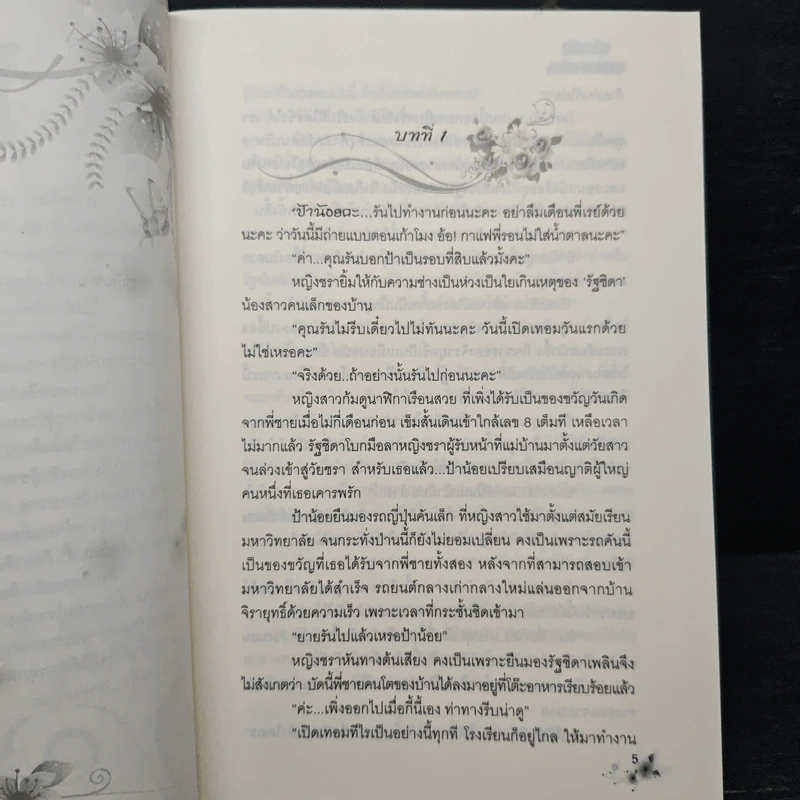 บทที่ 1
“ป้าน้อยคะ...รันไปทำงานก่อนนะคะ อย่าลืมเตือนพี่เรย์ด้วย
นะคะ ว่าวันนี้มีถ่ายแบบตอนเก้าโมง อ้อ! กาแฟพี่รอนไม่ใส่น้ำตาลนะคะ”
“ค่า...คุณรันบอกป้าเป็นรอบที่สิบแล้วมั้งคะ”
หญิงชรายิ้มให้กับความช่างเป็นห่วงเป็นใยเกินเหตุของ ‘รัฐชิดา’
น้องสาวคนเล็กของบ้าน
“คุณรันไม่รีบเดี๋ยวไปไม่ทันนะคะ วันนี้เปิดเทอมวันแรกด้วย
ไม่ใช่เหรอคะ”
“จริงด้วย..ถ้าอย่างนั้นรันไปก่อนนะคะ”
หญิงสาวก้มดูนาฬิกาเรือนสวย ที่เพิ่งได้รับเป็นของขวัญวันเกิด
จากพี่ชายเมื่อไม่กี่เดือนก่อน เข็มสั้นเดินเข้าใกล้เลข 8 เต็มที เหลือเวลา
ไม่มากแล้ว รัฐชิดาโบกมือลาหญิงชราผู้รับหน้าที่แม่บ้านมาตั้งแต่วัยสาว
จนล่วงเข้าสู่วัยชรา สำหรับเธอแล้ว...ป้าน้อยเปรียบเสมือนญาติผู้ใหญ่
คนหนึ่งที่เธอเคารพรัก
ป้าน้อยยืนมองรถญี่ปุ่นคันเล็ก ที่หญิงสาวใช้มาตั้งแต่สมัยเรียน
มหาวิทยาลัย จนกระทั่งป่านนี้ก็ยังไม่ยอมเปลี่ยน คงเป็นเพราะรถคันนี้
เป็นของขวัญที่เธอได้รับจากพี่ชายทั้งสอง หลังจากที่สามารถสอบเข้า
มหาวิทยาลัยได้สำเร็จ รถยนต์กลางเก่ากลางใหม่แล่นออกจากบ้าน
จิรายุทธิ์ด้วยความเร็ว เพราะเวลาที่กระชั้นชิดเข้ามา
“ยายรันไปแล้วเหรอป้าน้อย”
หญิงชราหันทางต้นเสียง คงเป็นเพราะยืนมองรัฐชิดาเพลินจึง
ไม่สังเกตว่า บัดนี้พี่ชายคนโตของบ้านได้ลงมาอยู่ที่โต๊ะอาหารเรียบร้อยแล้ว
“ค่ะ...เพิ่งออกไปเมื่อกี้นี้เอง ท่าทางรีบน่าดู”
“เปิดเทอมทีไรเป็นอย่างนี้ทุกที โรงเรียนก็อยู่ไกล ให้มาทำงาน
5